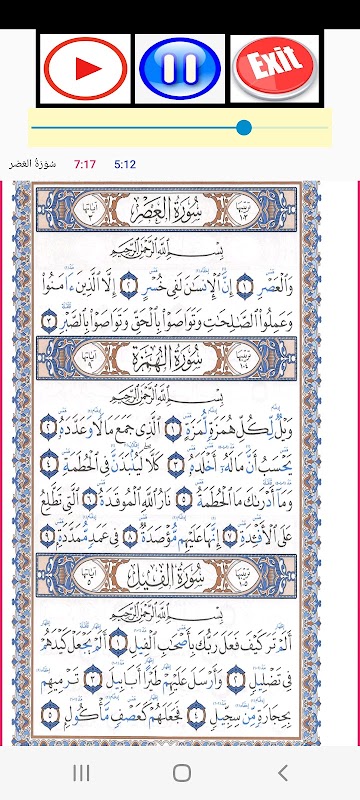 Exit
سُورَةُ العَصْر 7:17 5:12
ترتيبها ١٠٣ سُورَةُ العَصْرِ آياتها ٣
بِسْمِ اللَّهِ الرَّحْمَٰنِ الرَّحِيمِ
وَالْعَصْرِ ١ إِنَّ الْإِنسَانَ لَفِي خُسْرٍ ٢ إِلَّا الَّذِينَ ءَامَنُوا
وَعَمِلُوا الصَّالِحَاتِ وَتَوَاصَوْا بِالْحَقِّ وَتَوَاصَوْا بِالصَّبْرِ ٣
ترتيبها ١٠٤ سُورَةُ الهُمَزَةِ آياتها ٩
بِسْمِ اللَّهِ الرَّحْمَٰنِ الرَّحِيمِ
وَيْلٌ لِّكُلِّ هُمَزَةٍ لُّمَزَةٍ ١ الَّذِي جَمَعَ مَالًا وَعَدَّدَهُ ٢
يَحْسَبُ أَنَّ مَالَهُ أَخْلَدَهُ ٣ كَلَّا لَيُنبَذَنَّ فِي الْحُطَمَةِ ٤
وَمَا أَدْرَىٰكَ مَا الْحُطَمَةُ ٥ نَارُ اللَّهِ الْمُوقَدَةُ ٦ الَّتِي تَطَّلِعُ
عَلَى الْأَفْئِدَةِ ٧ إِنَّهَا عَلَيْهِم مُّؤْصَدَةٌ ٨ فِي عَمَدٍ مُّمَدَّدَةٍ ٩
ترتيبها ١٠٥ سُورَةُ الفِيلِ آياتها ٥
بِسْمِ اللَّهِ الرَّحْمَٰنِ الرَّحِيمِ
أَلَمْ تَرَ كَيْفَ فَعَلَ رَبُّكَ بِأَصْحَابِ الْفِيلِ ١ أَلَمْ يَجْعَلْ كَيْدَهُمْ
فِي تَضْلِيلٍ ٢ وَأَرْسَلَ عَلَيْهِمْ طَيْرًا أَبَابِيلَ ٣ تَرْمِيهِم
بِحِجَارَةٍ مِّن سِجِّيلٍ ٤ فَجَعَلَهُمْ كَعَصْفٍ مَّأْكُولٍ ٥